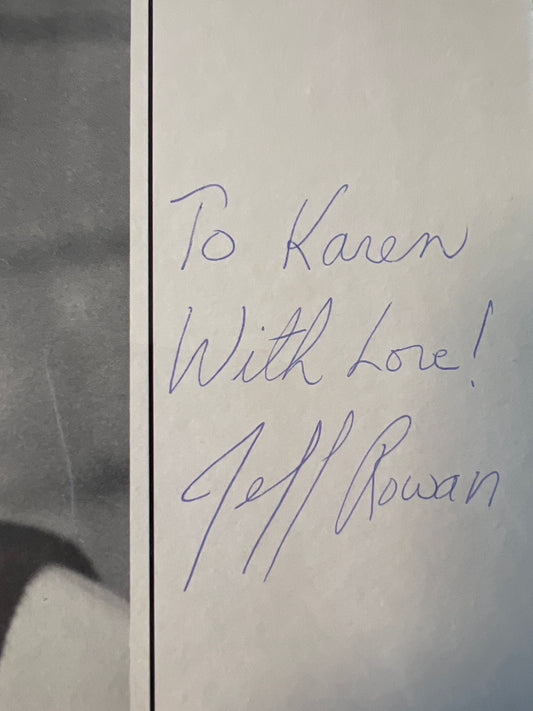 To Karen
With Love!
Jeff Rowan